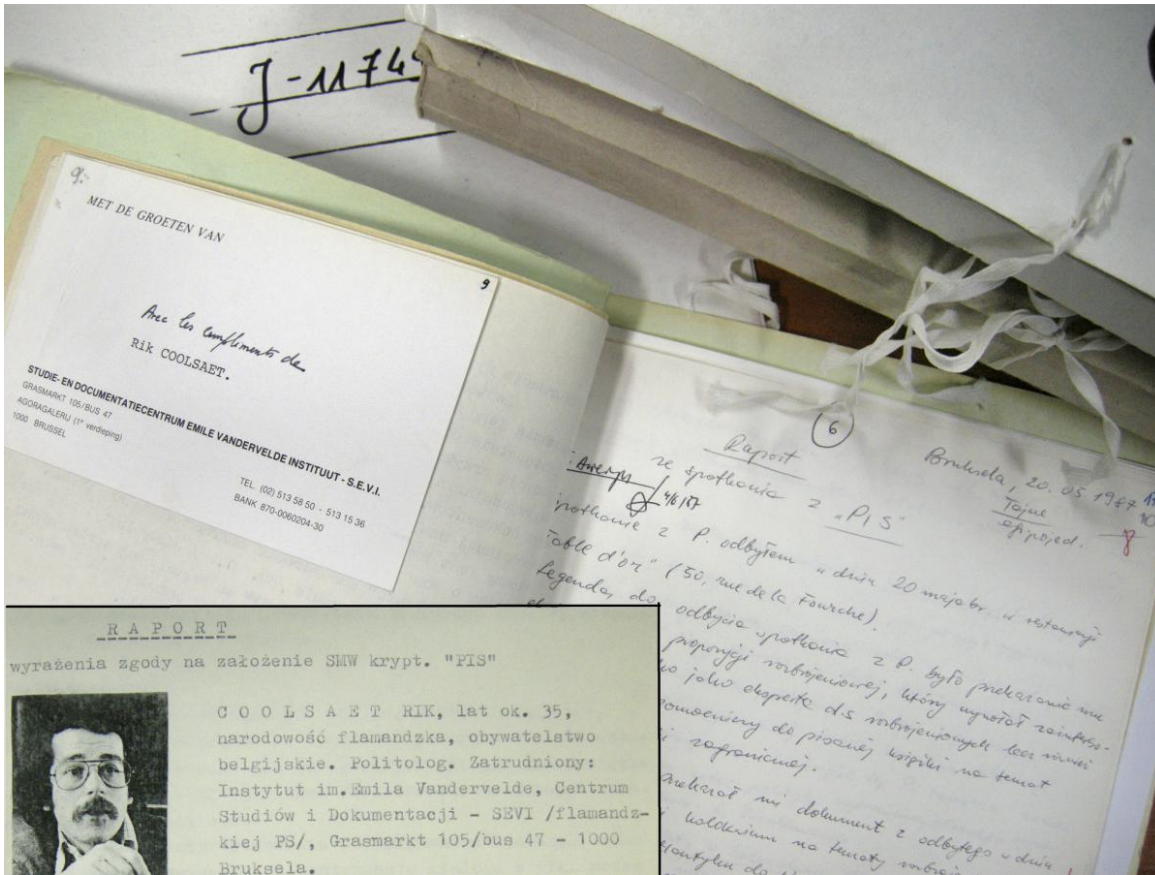 J-1174
g.
MET DE GROETEN VAN
9
Avec les compliments de
Rik COOLSAET.
STUDIE- EN DOCUMENTATIECENTRUM EMILE VANDERVELDE INSTITUUT - S.E.V.I.
GRASMARKT 105/BUS 47
AGORAGALERIJ (1e verdieping)
1000 BRUSSEL
TEL. (02) 513 58 50 - 513 15 36
BANK 870-0060204-30
6
Bruksela, 20. 05 1987
Tajne
Raport
ze spotkania z "PIS"
4/6/87
spotkanie z P. odbyłem w dniu 20 maja br. w restauracji
Table d'or" (50, rue de la Fourche).
Legendą do odbycia spotkania z P. było przekazanie mu
propozycji rozbrojeniowej, który wyraził
jako eksperta d.s. rozbrojeniowych lecz również
do pisanej książki na temat
zagranicznej.
przekazał mi dokument z odbytego w dniu
na tematy
RAPORT
wyrażenia zgody na założenie SMW krypt. "PIS"
COOLSAET RIK, lat ok. 35,
narodowość flamandzka, obywatelstwo
belgijskie. Politolog. Zatrudniony:
Instytut im.Emila Vandervelde, Centrum
Studiów i Dokumentacji - SEVI /flamandz-
kiej PS/, Grasmarkt 105/bus 47 - 1000
Bruksela.